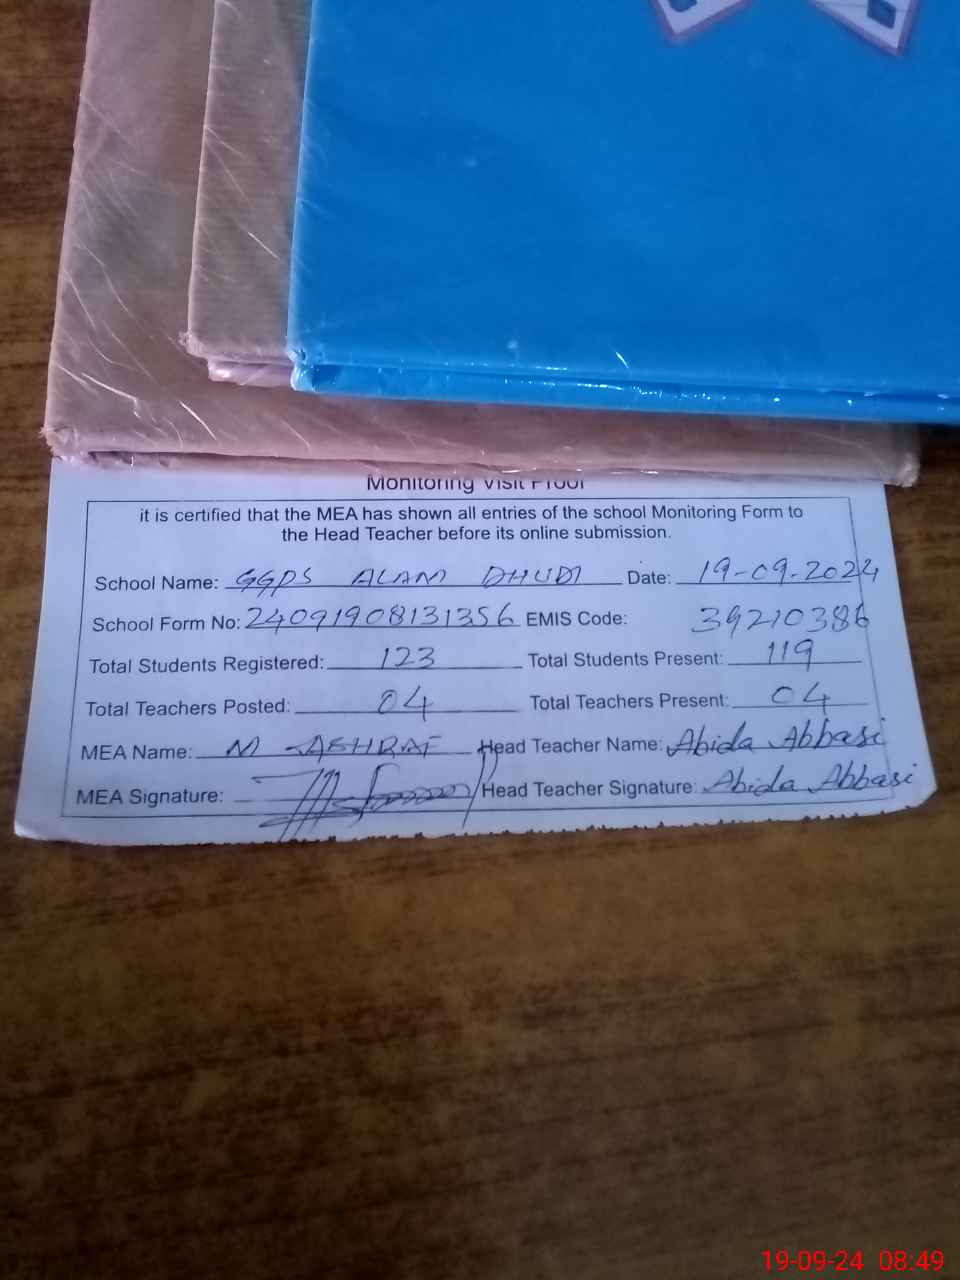 Monitoring Visit Proof
it is certified that the MEA has shown all entries of the school Monitoring Form to
the Head Teacher before its online submission.
School Name: GGPS ALAM DHUDI Date: 19-09-2024
School Form No: 24091908131356 EMIS Code: 39210386
Total Students Registered: 123 Total Students Present: 119
Total Teachers Posted: 04 Total Teachers Present: 04
MEA Name: M ASHRAF Head Teacher Name: Abida Abbasi
MEA Signature: Head Teacher Signature: Abida Abbasi
19-09-24 08:49